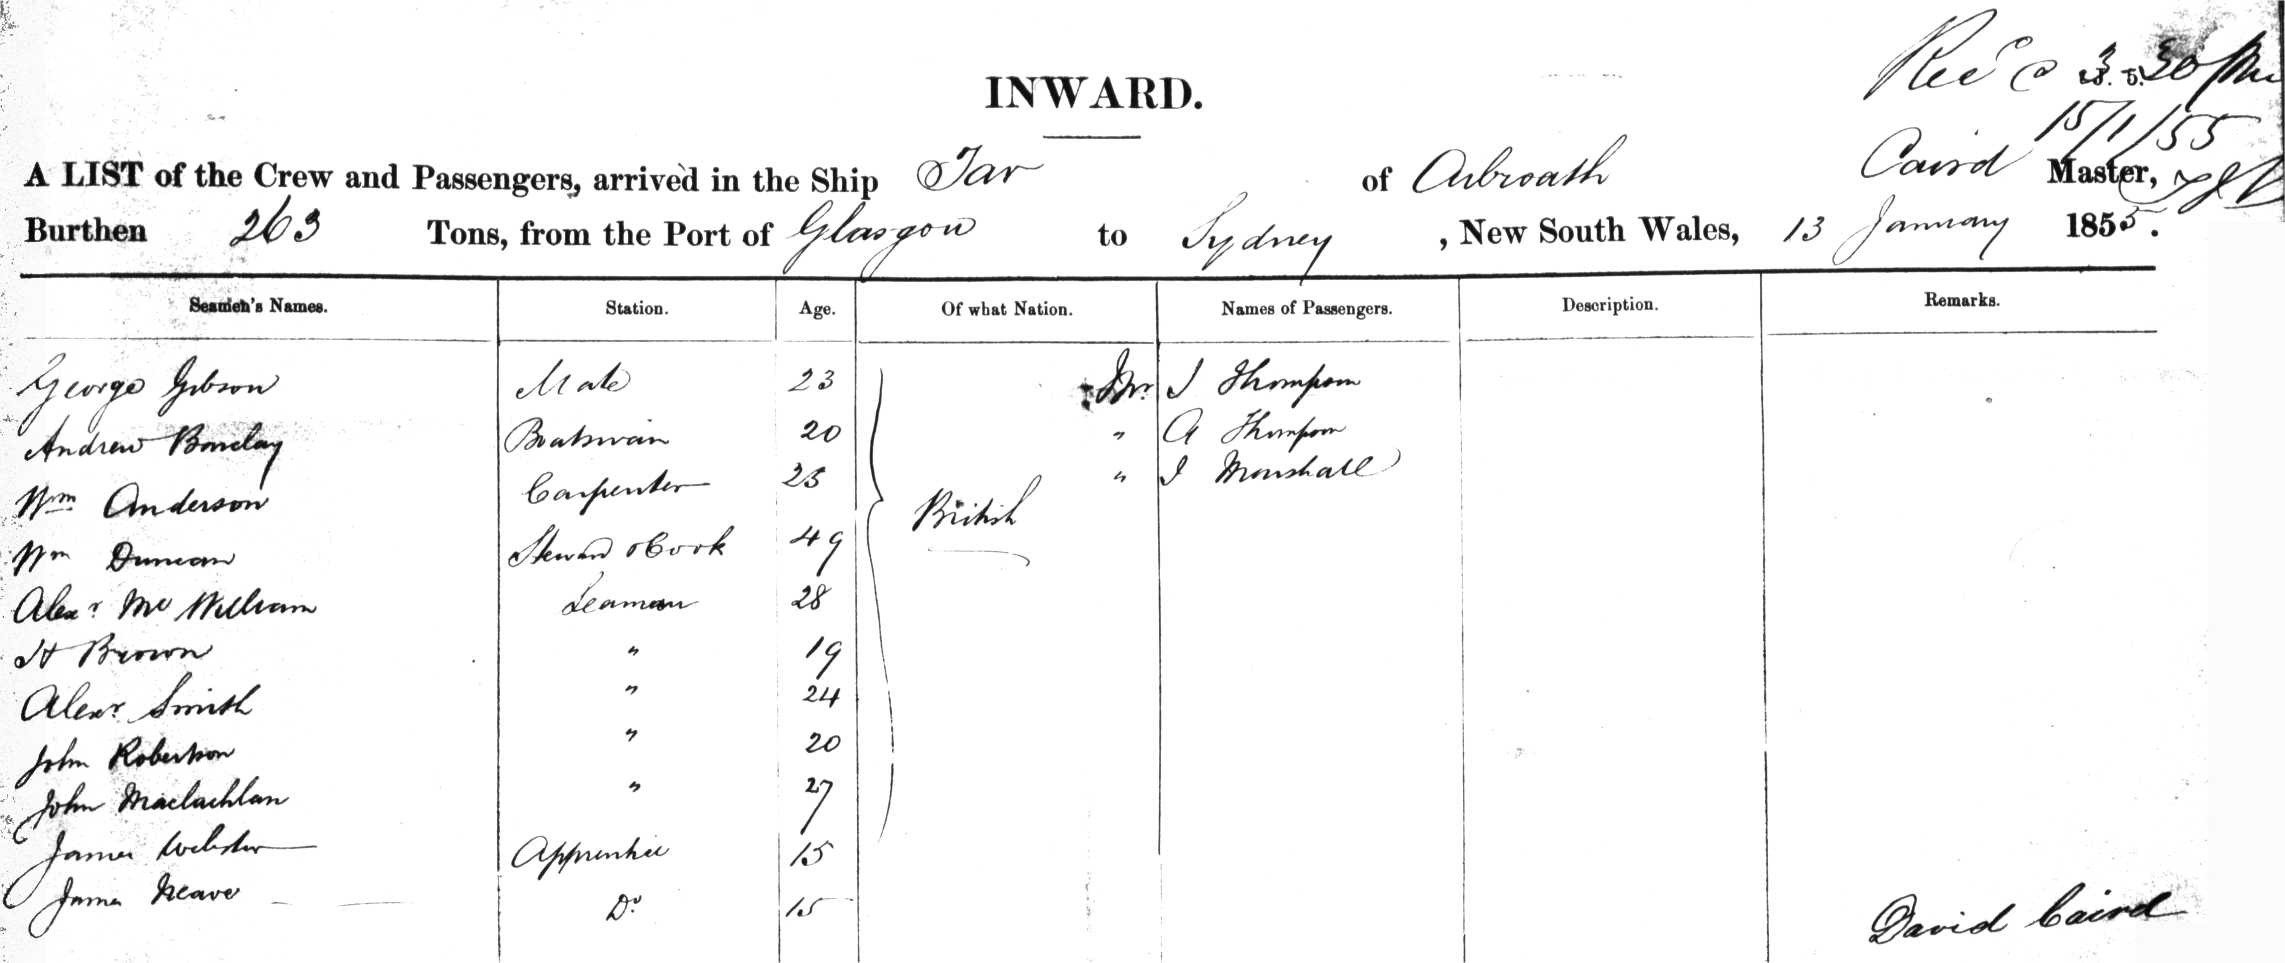 Recd @ 3.30 PM
15/1/55
INWARD.
A LIST of the Crew and Passengers, arrived in the Ship Tav of Arbroath Caird Master,
Burthen 263 Tons, from the Port of Glasgow to Sydney, New South Wales, 13 January 1855.
Seamen's Names. Station. Age. Of what Nation. Names of Passengers. Description. Remarks.
George Gibson Mate 23 Mr. J Thompson
Andrew Barclay Boatswain 20 " A Thompson
Wm Anderson Carpenter 25 British " J Marshall
Wm Duncan Steward & Cook 49
Alexr McWilliam Seaman 28
H Brown " 19
Alexr Smith " 24
John Robertson " 20
John Maclachlan " 27
James Webster Apprentice 15
James Neave Do 15
David Caird